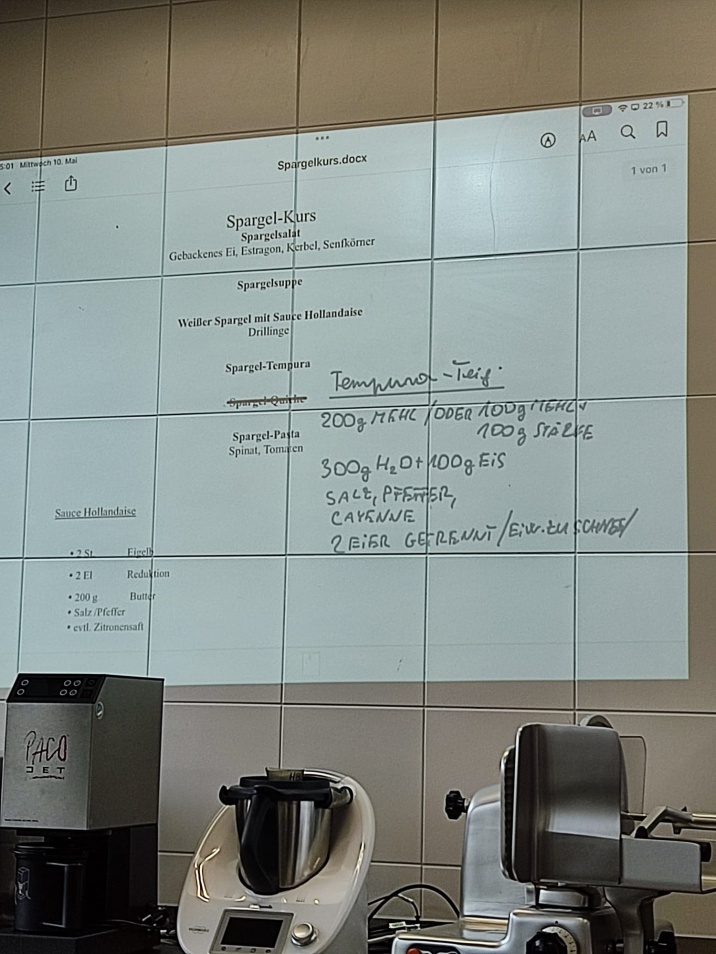 5:01 Mittwoch 10. Mai
22 %
Spargelkurs.docx
AA
1 von 1
Spargel-Kurs
Spargelsalat
Gebackenes Ei, Estragon, Kerbel, Senfkörner
Spargelsuppe
Weißer Spargel mit Sauce Hollandaise
Drillinge
Spargel-Tempura
Spargel-Quiche
Spargel-Pasta
Spinat, Tomaten
Tempura-Teig
200g MEHL / ODER 100g MEHL +
100g STÄRKE
300g H₂O + 100g EiS
SALZ, PFEFFER,
CAYENNE
2 EiER GETRENNT / EiW. ZU SCHNEE /
Sauce Hollandaise
• 2 St. Eigelb
• 2 El Reduktion
• 200 g Butter
• Salz /Pfeffer
• evtl. Zitronensaft
PACO
JET